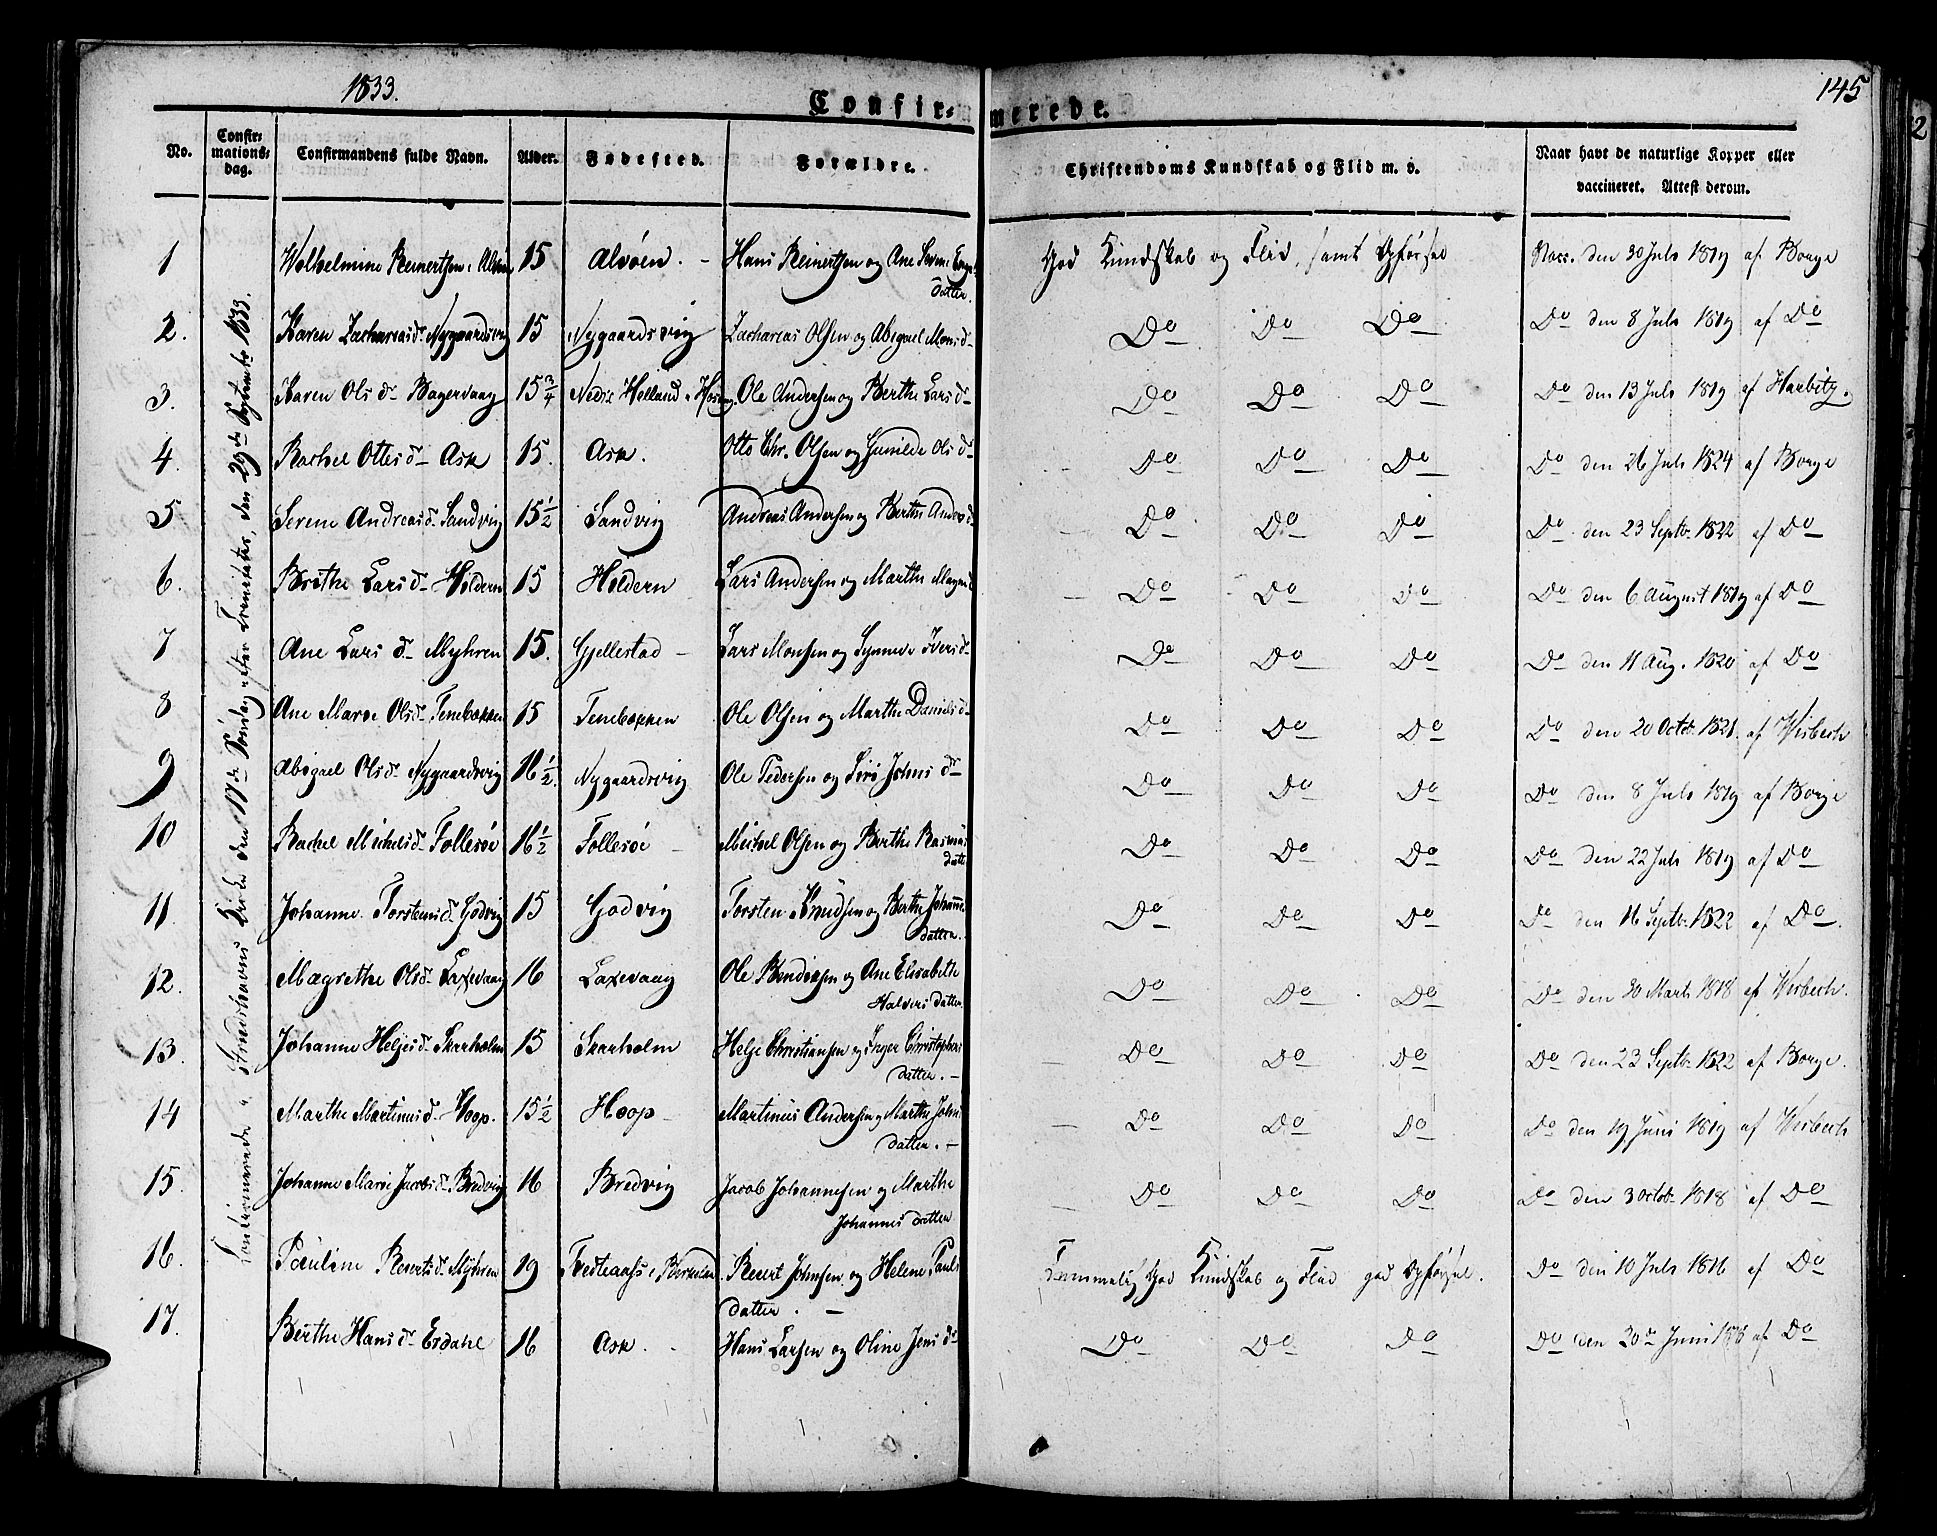 1833.
145
Confirmerede.
No.
Confir=
mations=
dag.
Confirmandens fulde Navn.
Alder.
Fødested.
Forældre.
Christendoms Kundskab og Flid m. v.
Naar havt de naturlige Kopper eller
vaccineret. Attest derom.
Confirmerede i Strudshavns Kirke den 17de Søndag efter Trinitatis, den 29de Septembr 1833.
1 Wilhelmine Reinertsen, Alvøen 15 Alvøen. - Hans Reinertsen og Ane Serine
datter. God Kundskab og Flid, samt Opførsel Vacc. den 30 Juli 1819 af Borge
2. Karen Zachariasd. Nygaardsvig 15 Nygaardsvig Zacharias Olsen og Abigael Monsd- Do Do Do Do den 8 Juli 1819 af Do
3. Karen Olsdr Bagervaag 15 3/4 Nedre Helland Ole Andersen og Berthe Larsd- Do Do Do Do den 13 Juli 1819 af Harbitz.
4. Rachel Ottesd- Ask 15. Ask. Otto Chr. Olsen og Gunilde Olsd- Do Do Do Do den 26 Juli 1824 af Borge
5 Serene Andreasd. Sandvig 15 1/2 Sandvig Andreas Andersen og Berthe Andersd Do Do Do Do den 23 Septbr. 1822 af Do
6. Brithe Larsd- Holdern 15 Holdern Lars Andersen og Marthe Magned Do Do Do Do den 6 August 1819 af Do
7 Ane Larsd- Myhren 15. Gjellestad - Lars Monsen og Synneve Iversd- Do Do Do Do den 11 Aug. 1820 af Do
8 Ane Marie Olsd- Tenebekken 15 Tenebekken Ole Olsen og Marthe Danielsd- Do Do Do Do den 20 Octobr. 1821. af Wisbech
9 Abigael Olsd- Nygaardsvig 16 1/2. Nygaardsvig Ole Pedersen og Siri Johnsd- Do Do Do Do den 8 Juli 1819 af Borge
10 Rachel Michelsd- Follesøe 16 1/2 Follesøe - Michel Olsen og Berthe Rasmus
datter Do Do Do Do den 22 Juli 1819 af Do
11. Johanne Torstensd. Godvig 15 Godvig Torsten Knudsen og Berthe Johanne
datter. Do Do Do Do den 16 Septbr. 1822 af Do.
12. Magrethe Olsd- Laxevaag 16 Laxevaag Ole Bendixen og Ane Elisabeth
Halvers datter Do Do Do Do den 30 Marts 1818 af Wisbech.
13. Johanne Heljesd- Skarholm 15 Skarholm Helje Christiansen og Inger Christophers
datter. - Do Do Do Do den 23 Septbr. 1822 af Borge.
14 Marthe Martinusd- Hoop. 15 1/2 Hoop - Martinus Andersen og Marthe Johns
datter. - Do Do Do Do den 19 Juni 1819 af Wisbech
15. Johanne Marie Jacobsd- Bredvig 16 Bredvig Jacob Johannesen og Marthe
Johannes datter Do Do Do Do den 3 Octobr. 1818 af Do
16. Pouline Revertsd- Myhren 19 Revert Johnsen og Helene Pauls
datter. - Temmelig God Kundskab og Flid god Opførsel. Do den 10 Juli 1816 af Do
17. Berthe Hansd- Erdahl 16 Ask. Hans Larsen og Oline Jensd- Do Do Do Do den 30de Juni af Do